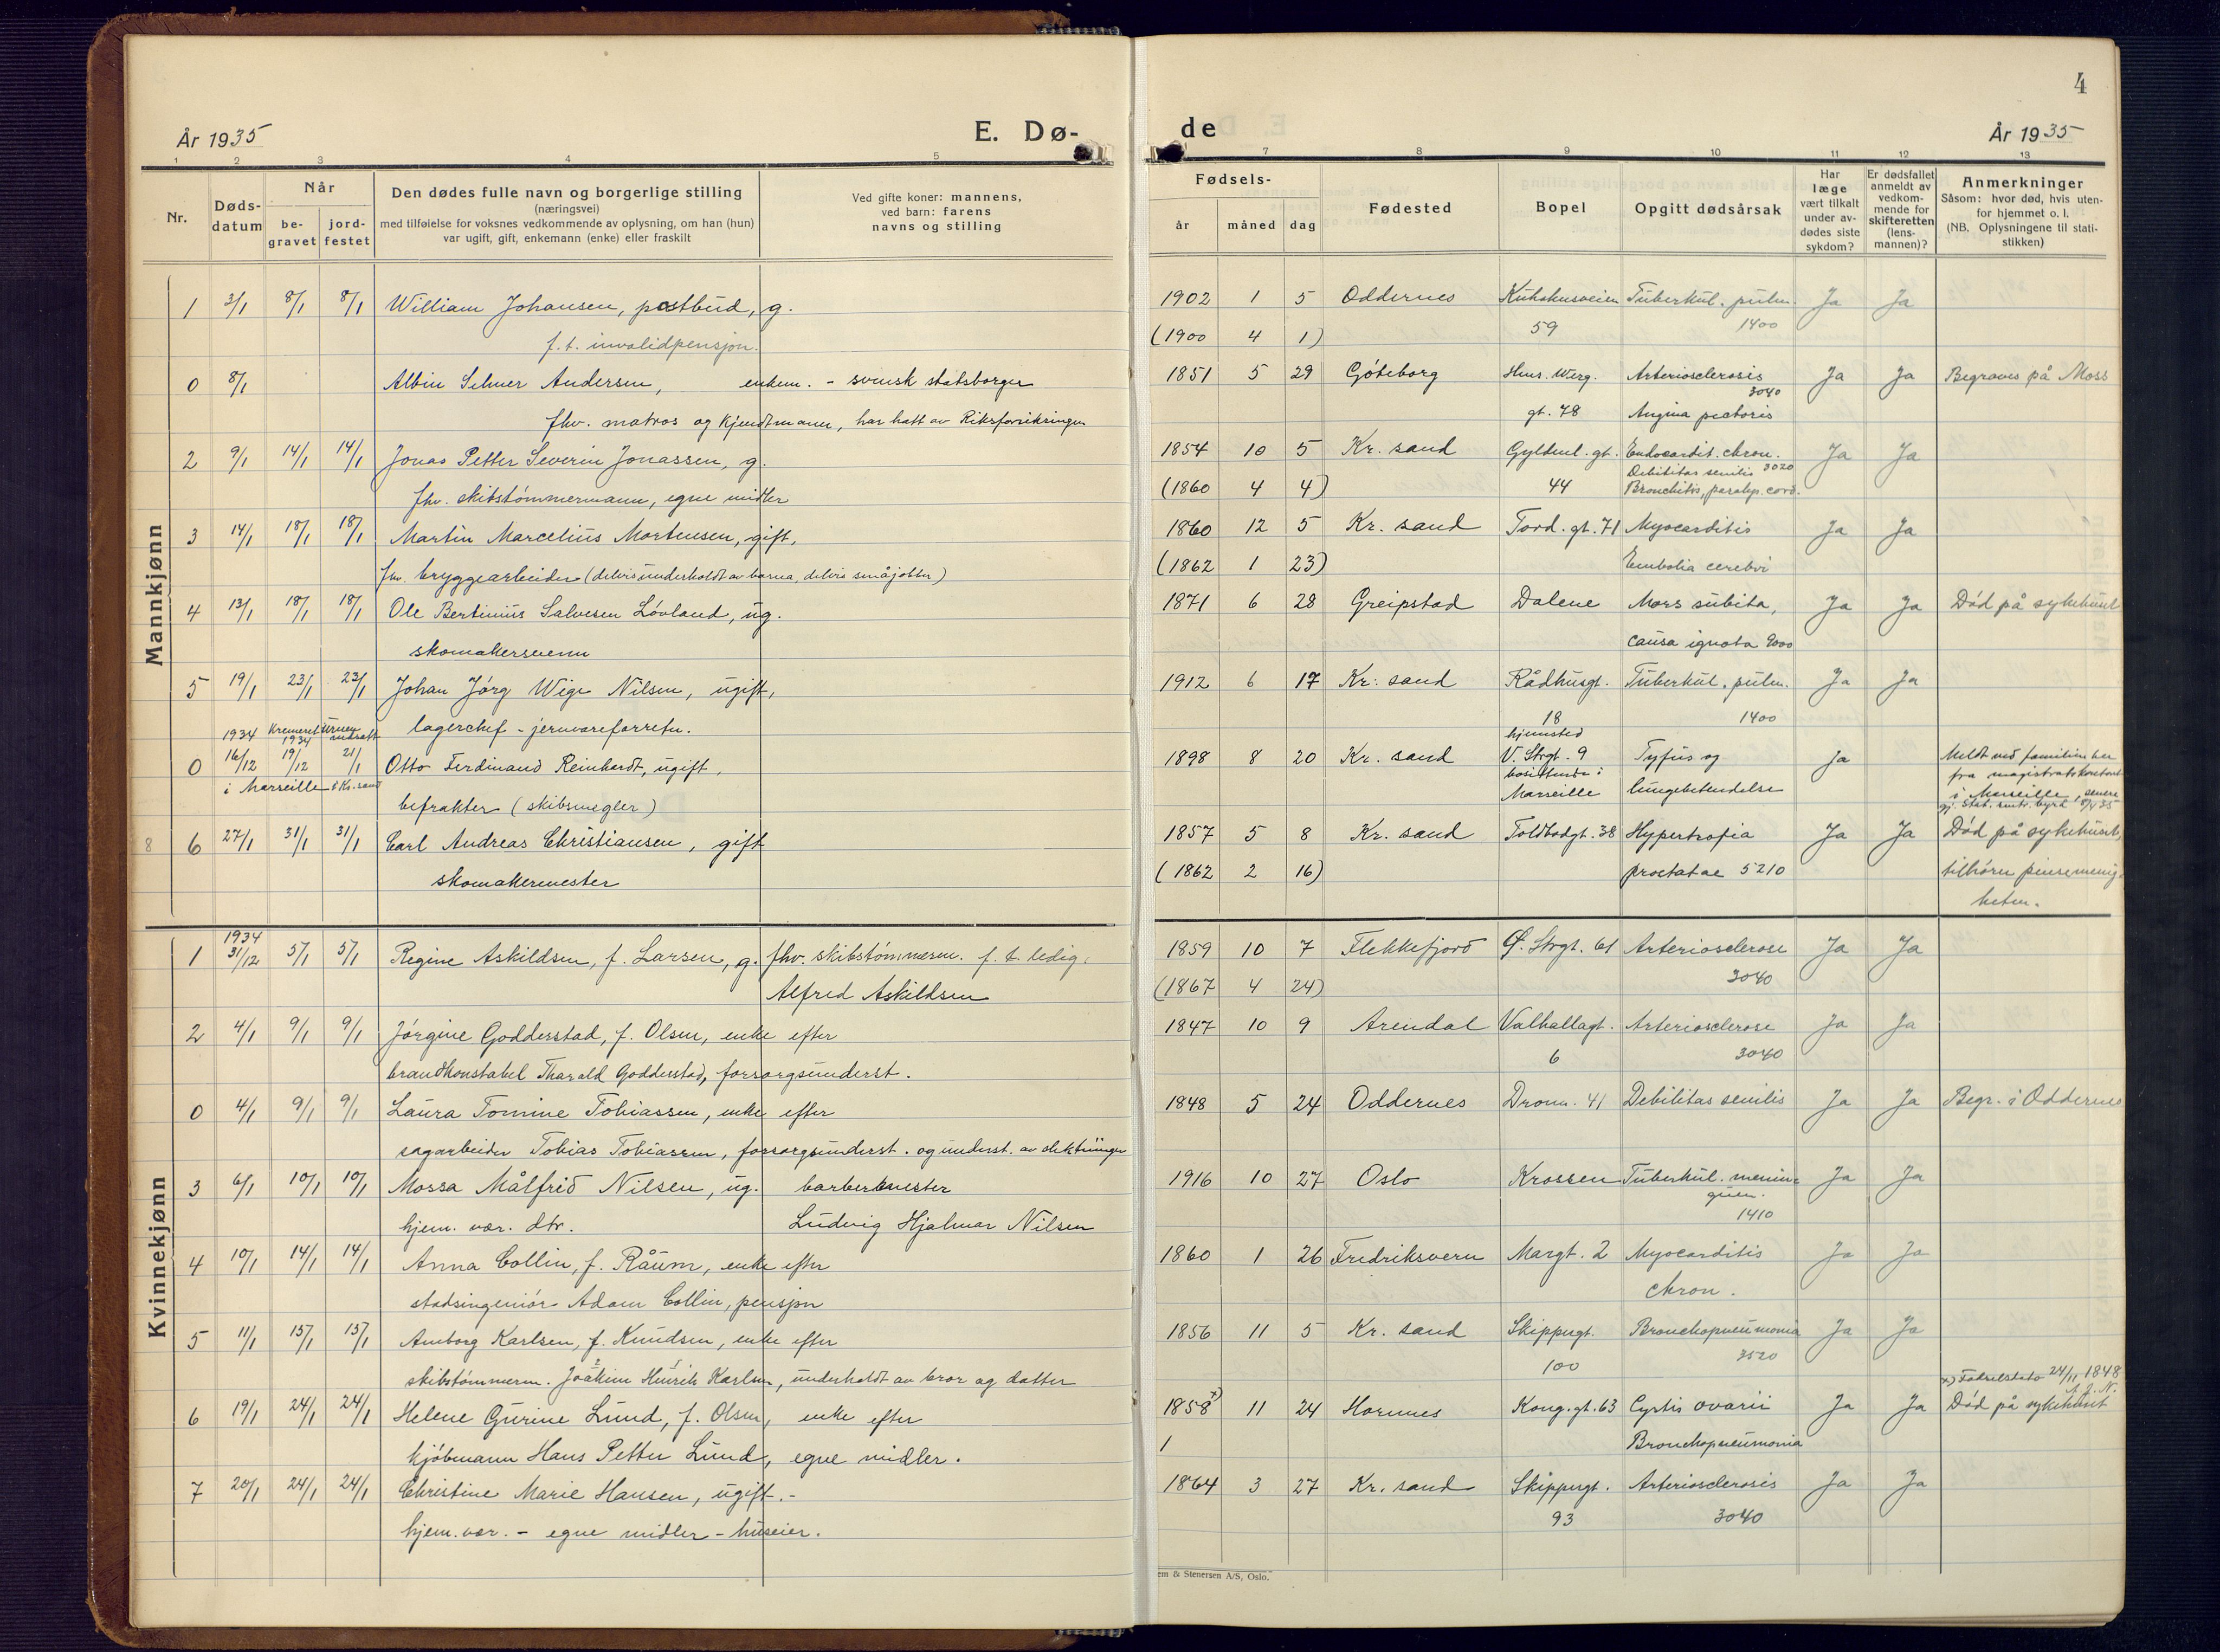 4
År 1935
E. Dø-
de
År 1935
1 2 3 4 5
7 8 9 10 11 12 13
Nr.
Døds-
datum
Når
be-
gravet
jord-
festet
Den dødes fulle navn og borgerlige stilling
(næringsvei)
med tilføielse for voksnes vedkommende av oplysning, om han (hun)
var ugift, gift, enkemann (enke) eller fraskilt
Ved gifte koner: mannens,
ved barn: farens
navns og stilling
Fødsels-
år måned dag
Fødested
Bopel
Opgitt dødsårsak
Har
læge
vært tilkalt
under av-
dødes siste
sykdom?
Er dødsfallet
anmeldt av
vedkom-
mende for
skifteretten
(lens-
mannen)?
Anmerkninger
Såsom: hvor død, hvis uten-
for hjemmet o. l.
(NB. Oplysningene til stati-
stikken)
Mannkjønn
1 3/1 8/1 8/1 William Johansen, postbud, g. 1902 1 5 Oddernes Tuberkul. pulm. Ja Ja
f. t. invalidpensjon. (1900 4 1) 59 1400
0 8/1 Albin Selmer Andersen, enkem. - svensk statsborger 1851 5 29 Göteborg Henr. Werg. Arteriosclerosis Ja Ja Begraves på Moss
3040
fhv. matros og Kjendtmann, har hatt av Riksforsikringen gt. 78 Angina pectoris
2 9/1 14/1 14/1 Jonas Petter Severin Jonassen, g. 1854 10 5 Kr. sand Gyldenl. gt. Endocardit. chron. Ja Ja
Debilitas senilis 3020
fhv. skibstømmermann, egne midler (1860 4 4) 44 Bronchitis, paralys. cord.
3 14/1 18/1 18/1 Martin Marcelius Mortensen, gift, 1860 12 5 Kr. sand Tord. gt. 71 Myocarditis Ja Ja
fhv. bryggearbeider (delvis underholdt av barna, delvis småjobber) (1862 1 23) Embolia cerebri
4 13/1 18/1 18/1 Ole Bertinius Salvesen Løvland, ug. 1871 6 28 Greipstad Dalene Mors subita, Ja Ja Død på sykehuset
skomakersvenn causa ignota 9000
5 19/1 23/1 23/1 Johan Jörg Wige Nilsen, ugift, 1912 6 17 Kr. sand Rådhusgt. Tuberkul. pulm. Ja Ja
lagerchef - jernvareforretn. 18 1400
1934 Kremeret 1934 Urnen nedsatt hjemsted
0 16/12 19/12 21/1 Otto Ferdinand Reinhardt, ugift, 1898 8 20 Kr. sand V. Strgt. 9 Tyfus og Ja Meldt ved familien her
i Marseille i Kr. sand bosittende i fra
befrakter (skibsmegler) Marseille lungebetendelse i Marseille, senere
8 6 27/1 31/1 31/1 Carl Andreas Christiansen, gift 1857 5 8 Kr. sand Toldbodgt. 38 Hypertrofia Ja Ja Død på sykehuset,
skomakermester (1862 2 16) prostatae 5210 tilhører pinsemenig-
heten.
Kvinnekjønn
1934
1 31/12 5/1 5/1 Regine Askildsen, f. Larsen, g. fhv. skibstømmerm. f. t. ledig. 1859 10 7 Flekkefjord Ø. Strgt. 61 Arteriosclerose Ja Ja
Alfred Askildsen (1867 4 24) 3040
2 4/1 9/1 9/1 Jørgine Godderstad, f. Olsen, enke efter 1847 10 9 Arendal Valhallagt. Arteriosclerose Ja Ja
brandkonstabel Tharald Godderstad, forsorgsunderst. 6 3040
0 4/1 9/1 9/1 Laura Tomine Tobiassen, enke efter 1848 5 24 Oddernes Dronn. 41 Debilitas senilis Ja Ja Begr. i Oddernes
sagarbeider Tobias Tobiassen, forsorgsunderst. og underst. av slektninger
3 6/1 10/1 10/1 Mossa Målfrid Nilsen, ug. barbermester 1916 10 27 Oslo Krossen Tuberkul. menin- Ja Ja
hjem. vær. dtr. Ludvig Hjalmar Nilsen 1410
4 10/1 14/1 14/1 Anna Collin, f. Råum, enke efter 1860 1 26 Fredriksvern Margt. 2 Myocarditis Ja Ja
stadsingeniør Adam Collin, pensjon chron.
5 11/1 15/1 15/1 Amborg Karlsen, f. Knudsen, enke efter 1856 11 5 Kr. sand Skippergt. Bronchopneumonia Ja Ja
skibstømmerm. Joakim Henrik Karlsen, underholdt av bror og datter 100 3520
x) Fødselsdato 24/11 1848
6 19/1 24/1 24/1 Helene Gurine Lund, f. Olsen, enke efter 1858 x) 11 24 Hornnes Kong. gt. 63 Cystis ovarii Ja Ja Død på sykehuset
kjøbmann Hans Petter Lund, egne midler. 1 Bronchopneumonia
7 20/1 24/1 24/1 Christine Marie Hansen, ugift. - 1864 3 27 Kr. sand Skippergt. Arteriosclerosis Ja Ja
hjem. vær. - egne midler - huseier. 93 3040
em & Stenersen A/S, Oslo.